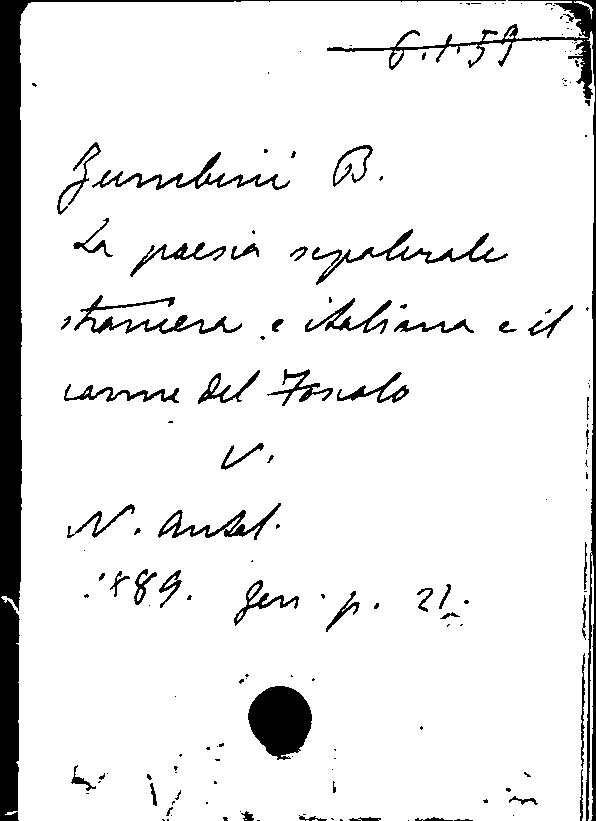 6.1.59
Zumbini B.
La poesia sepolcrale
straniera e italiana e il
carme del Foscolo
V.
N. Antol.
1889. Gen. p. 21.